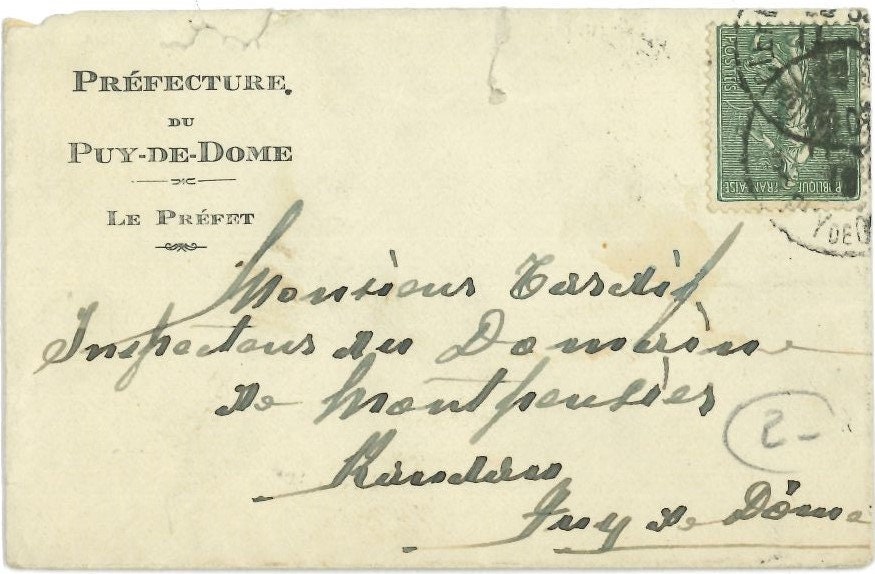 PRÉFECTURE.
DU
PUY-DE-DOME
LE PRÉFET
POSTES
RÉPUBLIQUE FRANÇAISE
Y DE
Monsieur Tardif
Inspecteur du Domaine
de Montpensier
Randan
Puy de Dôme
2-